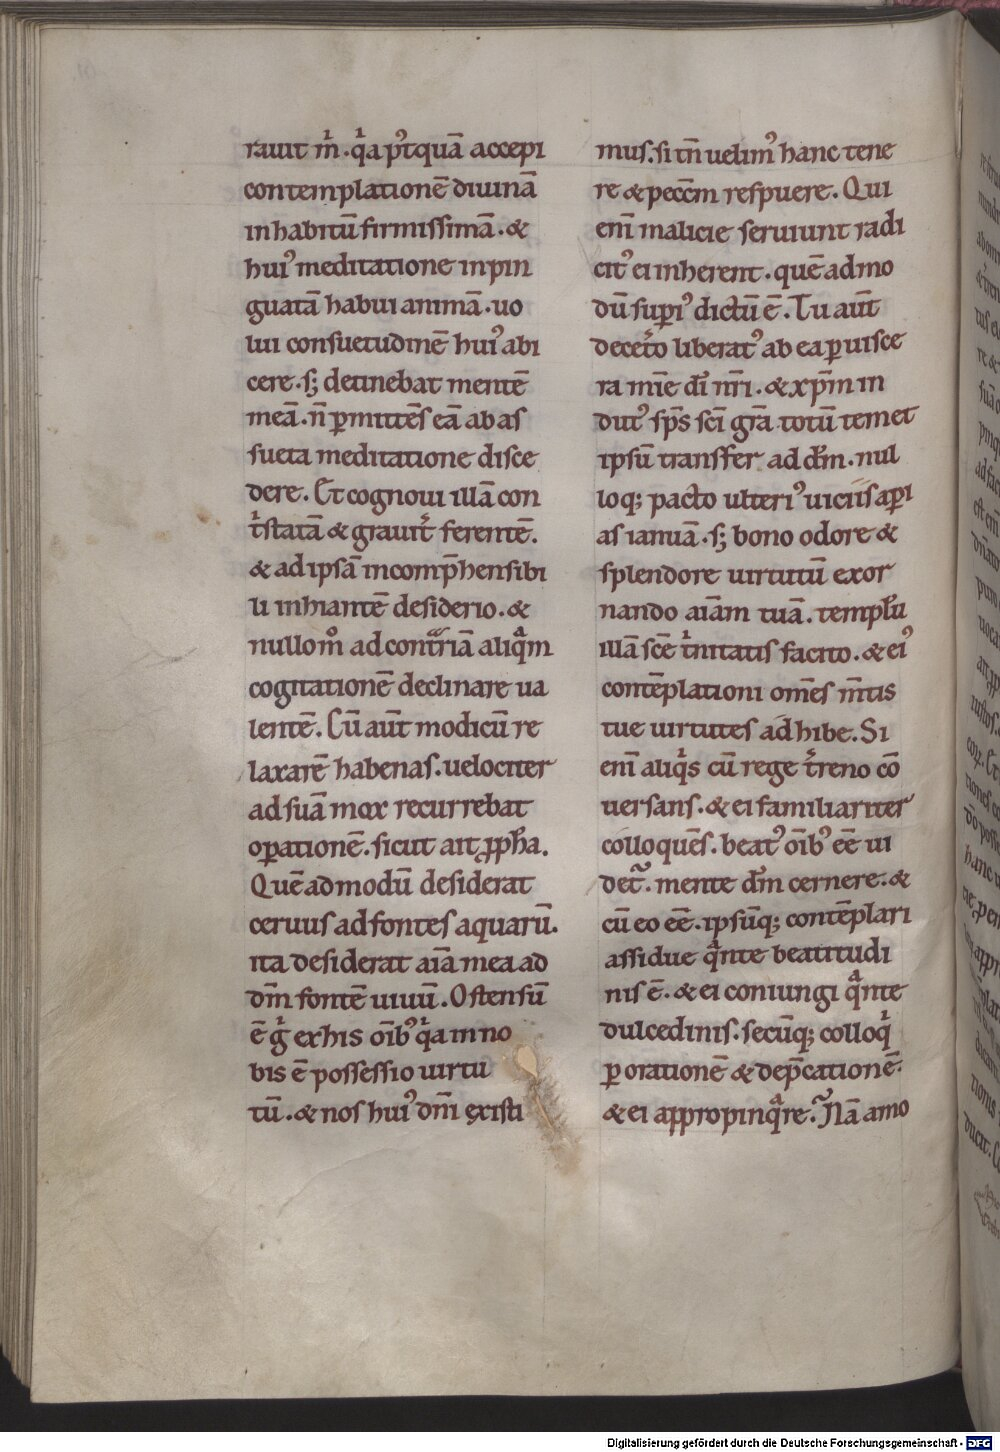 rauit m̄. q̇a pꝰtquā accepi
contemplationē diuinā
in habitū firmissimā. &
huiꝰ meditatione inpin
guatā habui animā. uo
lui consuetudinē huiꝰ abi
cere. s; detinebat mentē
meā. n̄ ꝑmittēs eā ab as
sueta meditatione disce
dere. Et cognoui illā con
t̓statā & grauit̓ ferentē.
& ad ipsā incomp̄hensibi
li inhiantē desiderio. &
nullo m̊ ad contrͣiā aliqͣm
cogitationē declinare ua
lentē. Cū aūt modicū re
laxarē habenas. uelociter
ad suā mox recurrebat
oꝑationē. sicut ait ꝓph̄a.
Quēadmodū desiderat
ceruus ad fontes aquarū.
ita desiderat aīa mea ad
dm̄ fontē uiuū. Ostensū
ē gͥ ex his oībꝰ qͥa in no
bis ē possessio uirtu
tū. & nos huiꝰ dn̄i existi
mus. si tn̄ uelimꝰ hanc tene
re & pecc̄m respuere. Qui
enī malicie seruiunt radi
citꝰ ei inherent. quēadmo
dū suꝑiꝰ dictū ē. Tu aūt
decet̓o liberatꝰ ab ea ꝑ uisce
ra mīe dī nr̄i. & xp̄m in
dutꝰ sp̄s sc̄i gr̄a totū temet
ipsū transfer ad dm̄. nul
loq; pacto ulteriꝰ uiciis aꝑi
as ianuā. s; bono odore &
splendore uirtutū exor
nando aīam tuā. templū
illā sc̄e tͥnitatis facito. & eiꝰ
contēplationi omēs m̄tis
tue uirtutes adhibe. Si
enī aliqͥs cū rege t̓reno cō
uersans. & ei familiariter
colloquēs. beatꝰ oībꝰ eē ui
det᷑. mente dm̄ cernere. &
cū eo eē. ipsūq; contēplari
assidue qͣnte beatitudi
nis ē. & ei coniungi qͣnte
dulcedinis. secūq; colloqͥ
ꝑ orationē & dep̄cationē.
& ei appropinqͣre. Nā amo